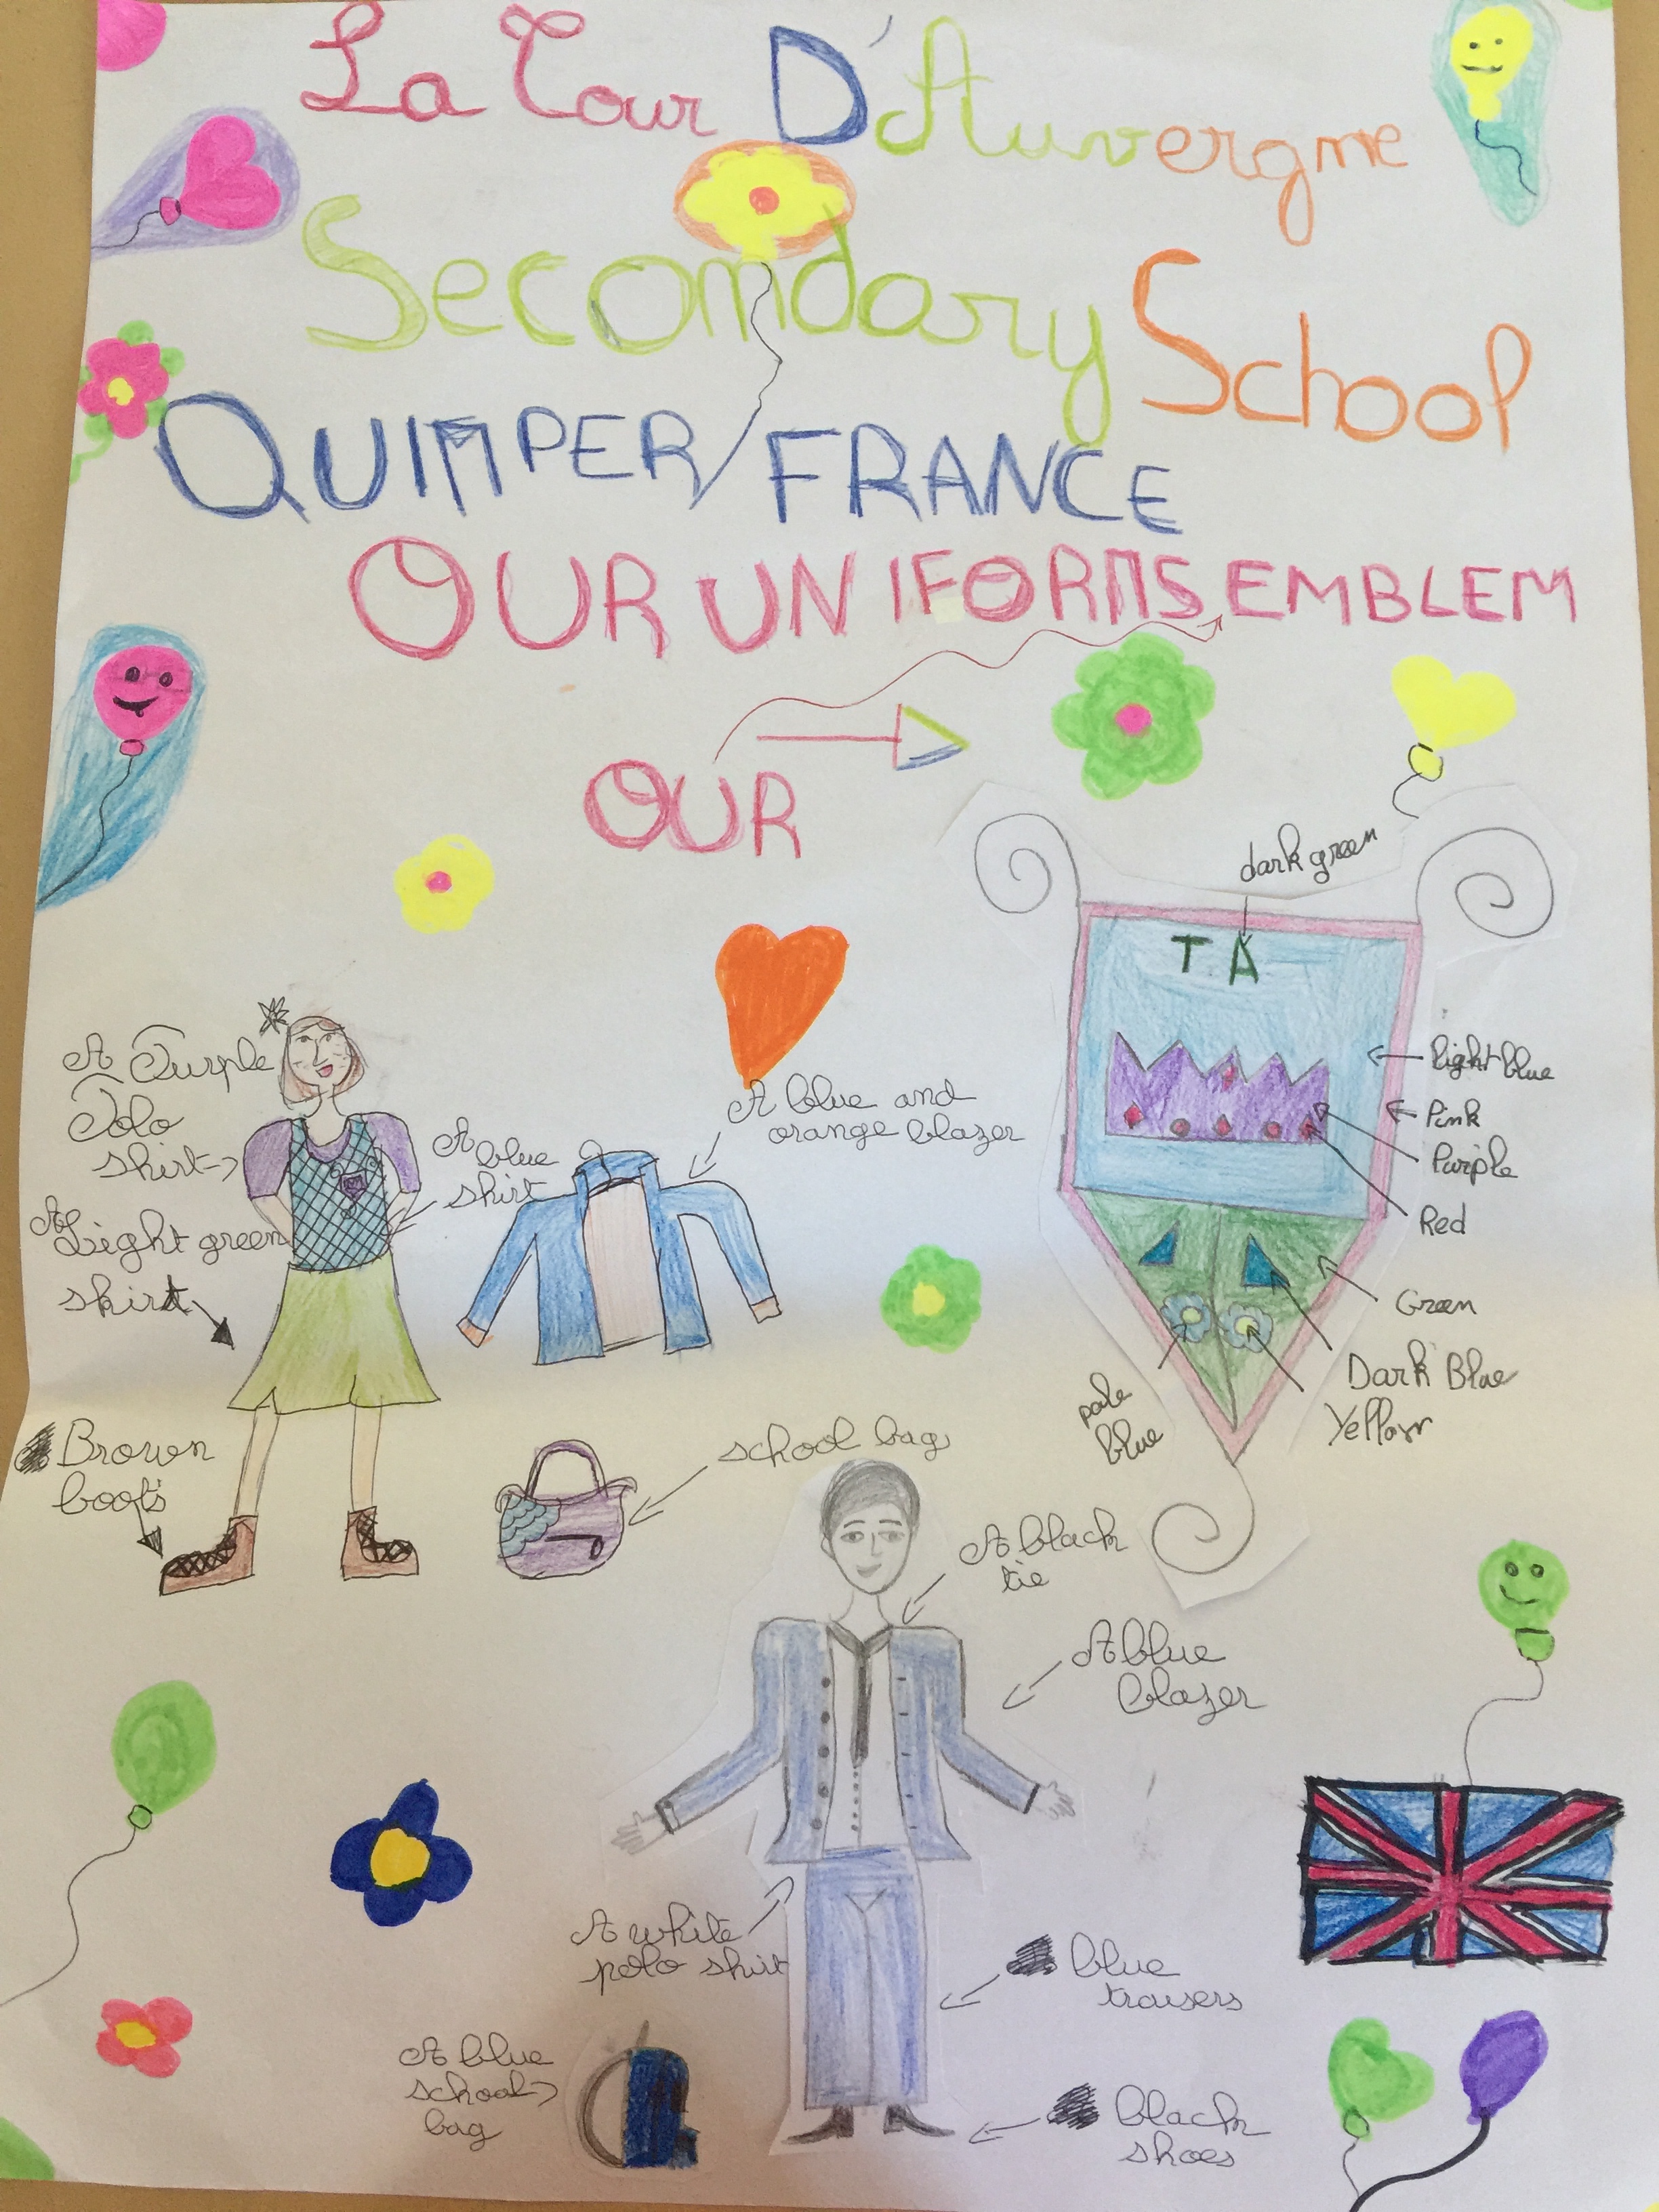 La Tour D'Auvergne
Secondary School
QUIMPER/FRANCE
OUR UNIFORMS EMBLEM
OUR
dark green
T A
light blue
Pink
Purple
Red
Green
Dark Blue
Yellow
pale
blue
A Purple
Polo
shirt
A blue
shirt
A blue and
orange blazer
A Light green
skirt
Brown
boots
school bag
A black
tie
A blue
blazer
A white
polo shirt
blue
trousers
A blue
school
bag
black
shoes